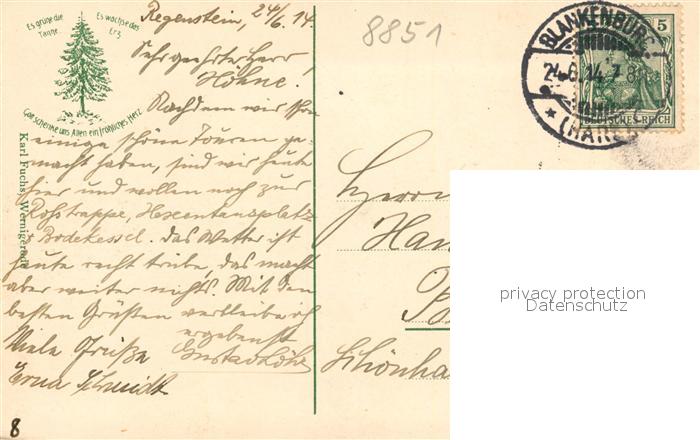 Es grüne die Tanne
Es wachse das Erz
Gott schenke uns Allen ein fröhliches Herz
Karl Fuchs, Wernigerode
Regenstein, 24/6. 14.
Sehr geehrter Herr
Höhne.
Nachdem wir schon
einige schöne Touren ge-
macht haben, sind wir heute
hier und wollen noch zur
Roßtrappe, Hexentanzplatz
& Bodekessel. Das Wetter ist
heute recht trübe, das macht
aber weiter nichts. Mit den
besten Grüßen verbleibe ich
ergebenst
Gustav
Viele Grüße
Erna Schmidt
8
8851
BLANKENBURG
24.6.14.7-8
(HARZ)
5
DEUTSCHES REICH
Herrn
Han
B
Schönha
privacy protection
Datenschutz